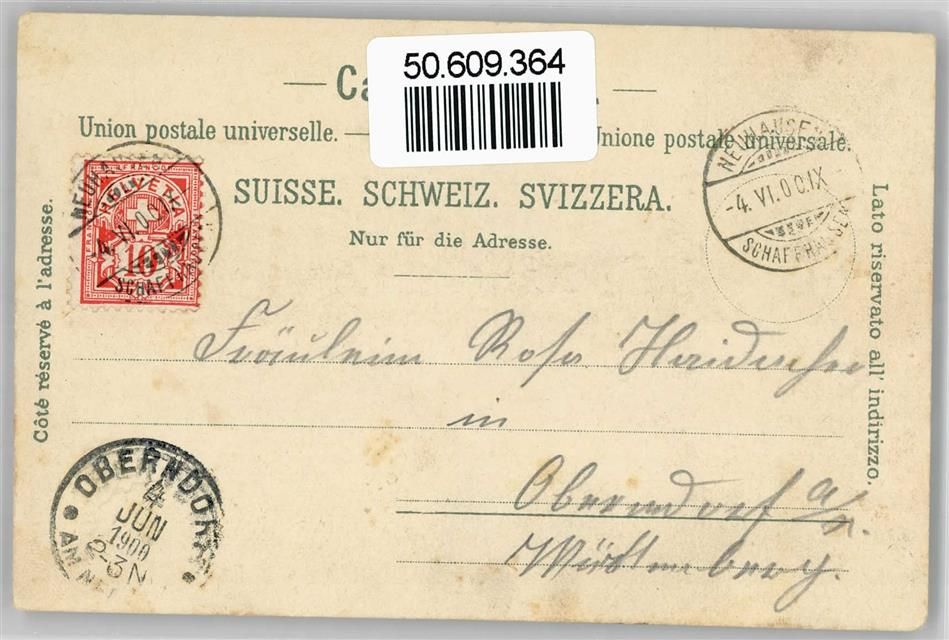 50.609.364
Union postale universelle. — Unione postale universale.
SUISSE. SCHWEIZ. SVIZZERA.
Nur für die Adresse.
Côté réservé à l'adresse.
Lato riservato all' indirizzo.
HELVETIA
10
NEUHAUSEN
-4.VI.00.IX
SCHAFFHAUSEN
Fräulein Rosa
in
Oberndorf a/n.
Württemberg.
OBERNDORF
4
JUN
1900
2-3N
AM NE